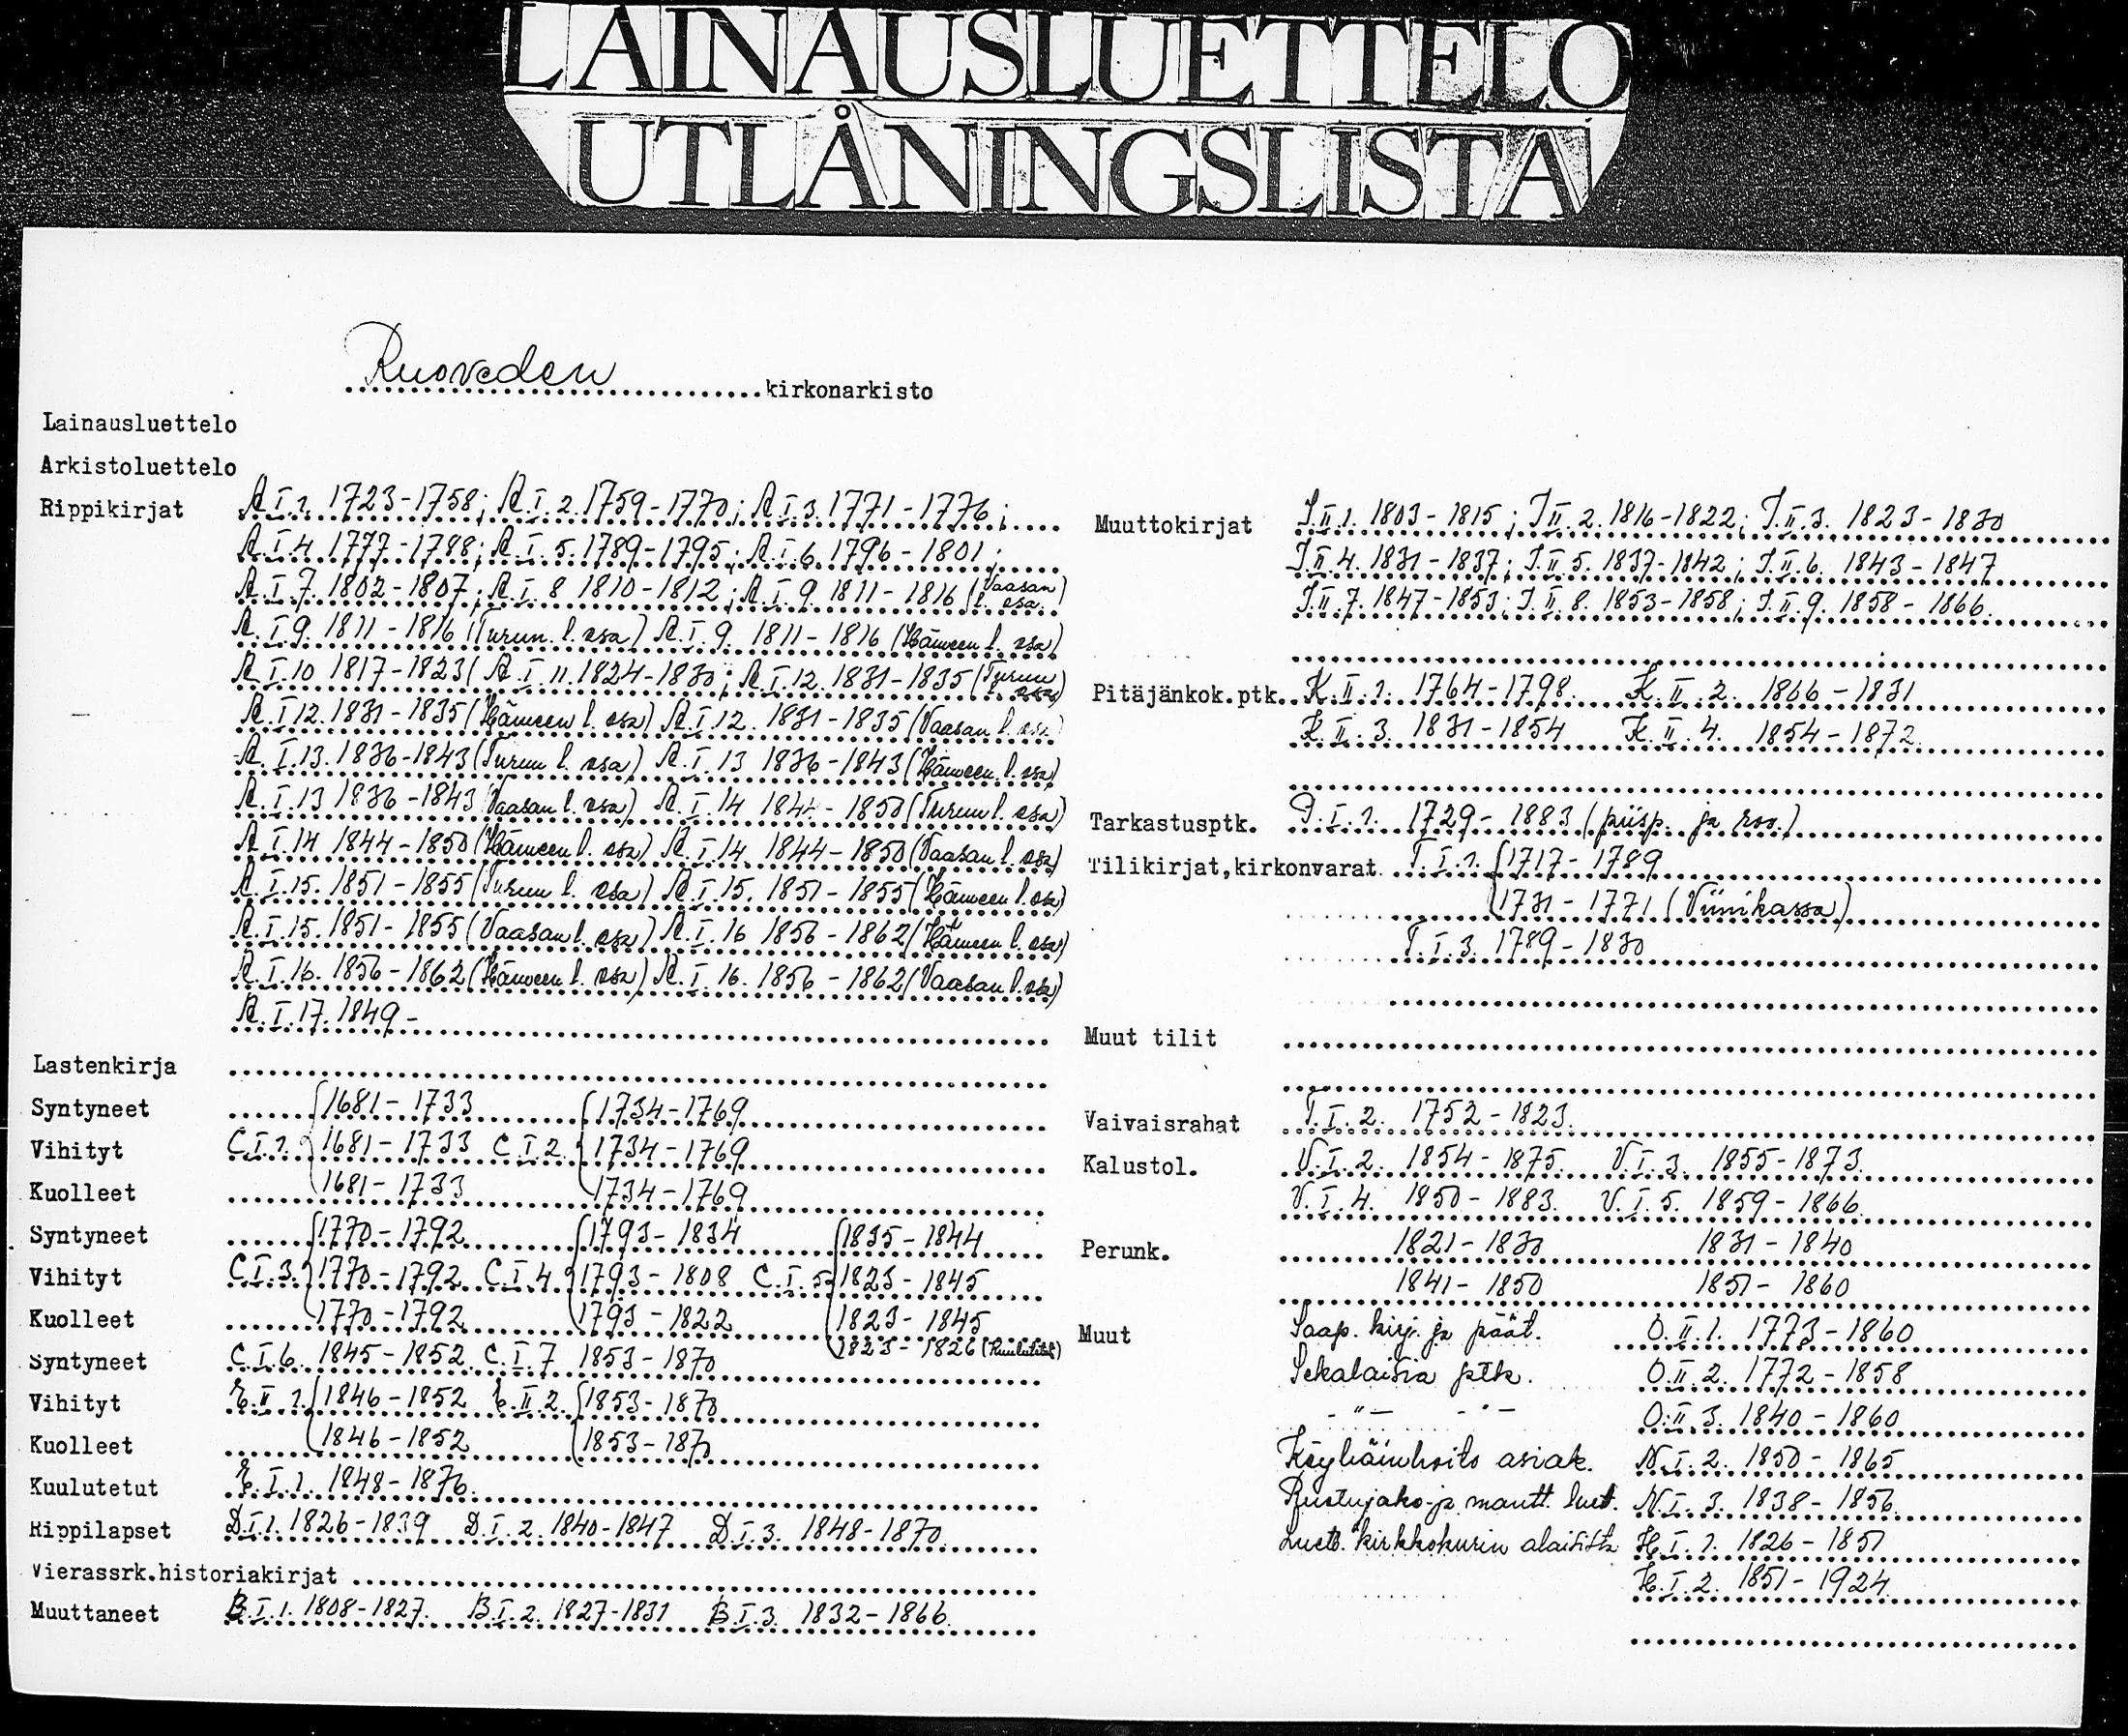 LAINAUSLUETTELO
UTLÅNINGSLISTA
Ruoveden kirkonarkisto
Lainausluettelo
Arkistoluettelo
Rippikirjat A.I.1. 1723-1758; A.I.2. 1759-1770; A.I.3. 1771-1776;
A.I.4. 1777-1788; A.I.5. 1789-1795; A.I.6. 1796-1801;
A.I.7. 1802-1807; A.I.8 1810-1812; A.I.9. 1811-1816 (Vaasan l. osa)
A.I.9. 1811-1816 (Turun l. osa) A.I.9. 1811-1816 (Hämeen l. osa)
A.I.10 1817-1823( A.I.11. 1824-1830; A.I.12. 1831-1835 (Turun l. osa)
A.I.12. 1831-1835 (Hämeen l. osa) A.I.12. 1831-1835 (Vaasan l. osa)
A.I.13. 1836-1843 (Turun l. osa) A.I.13 1836-1843 (Hämeen l. osa)
A.I.13 1836-1843 (Vaasan l. osa) A.I.14 1844-1850 (Turun l. osa)
A.I.14 1844-1850 (Hämeen l. osa) A.I.14. 1844-1850 (Vaasan l. osa)
A.I.15. 1851-1855 (Turun l. osa) A.I.15. 1851-1855 (Hämeen l. osa)
A.I.15. 1851-1855 (Vaasan l. osa) A.I.16 1856-1862 (Hämeen l. osa)
A.I.16. 1856-1862 (Hämeen l. osa) A.I.16. 1856-1862 (Vaasan l. osa)
A.I.17. 1849-
Lastenkirja
Syntyneet 1681-1733 1734-1769
Vihityt C.I.1. 1681-1733 C.I.2. 1734-1769
Kuolleet 1681-1733 1734-1769
Syntyneet 1770-1792 1793-1834 1835-1844
Vihityt C.I.3. 1770-1792 C.I.4. 1793-1808 C.I.5. 1823-1845
Kuolleet 1770-1792 1793-1822 1823-1845
1823-1826
Syntyneet C.I.6. 1845-1852 C.I.7 1853-1870
Vihityt E.II.1. 1846-1852 E.II.2. 1853-1870
Kuolleet 1846-1852 1853-1870
Kuulutetut E.I.1. 1848-1876.
Rippilapset D.I.1. 1826-1839 D.I.2. 1840-1847 D.I.3. 1848-1870.
Vierassrk.historiakirjat
Muuttaneet B.I.1. 1808-1827. B.I.2. 1827-1831 B.I.3. 1832-1866.
Muuttokirjat J.II.1. 1803-1815; J.II.2. 1816-1822; J.II.3. 1823-1830
J.II.4. 1831-1837; J.II.5. 1837-1842; J.II.6. 1843-1847
J.II.7. 1847-1853; J.II.8. 1853-1858; J.II.9. 1858-1866.
Pitäjänkok.ptk. K.II.1. 1764-1798. K.II.2. 1806-1831
K.II.3. 1831-1854 K.II.4. 1854-1872.
Tarkastusptk. P.I.1. 1729-1883 (piisp. ja rov.)
Tilikirjat,kirkonvarat T.I.1. 1717-1789
1731-1771 (Viinikassa)
T.I.3. 1789-1830
Muut tilit
Vaivaisrahat T.I.2. 1752-1823.
Kalustol. V.I.2. 1854-1875. V.I.3. 1855-1873.
V.I.4. 1850-1883. V.I.5. 1859-1866.
Perunk. 1821-1830 1831-1840
1841-1850 1851-1860
Muut Saap. kirj. ja päät. O.II.1. 1773-1860
Sekalaisia ptk. O.II.2. 1772-1858
-"- -"- O.II.3. 1840-1860
Köyhäinhoito asiak. N.I.2. 1850-1865
Ruotujako- ja mantt. luet. N.I.3. 1838-1856.
Luett. kirkkokurin alaisista H.I.1. 1826-1851
H.I.2. 1851-1924.